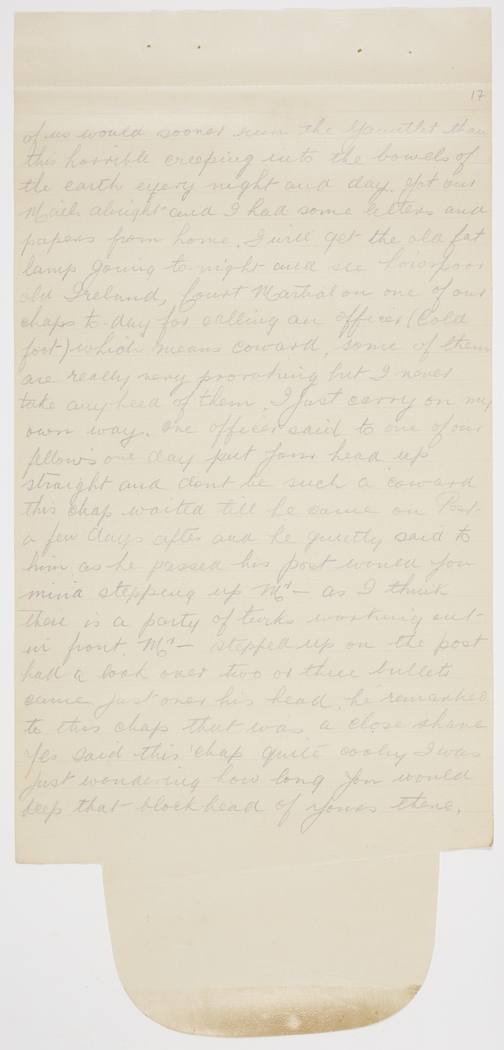 17
of us would sooner run the Gauntlet than
this horrible creeping into the bowels of
the earth every night and day. Got our
Mails alright and I had some letters and
papers from home. I will get the old fat
lamp going to-night and see how poor
old Ireland, Court Martial on one of our
chaps to-day for calling an officer (Cold
foot) which means coward, some of them
are really very provoking but I never
take any heed of them. I just carry on my
own way. One officer said to one of our
fellows one day put your head up
straight and dont be such a coward
this chap waited till he came on Post
a few days after and he quietly said to
him as he passed his post would you
mind stepping up Mr — as I think
there is a party of turks working out
in front. Mr — stepped up on the post
had a look over two or three bullets
came just over his head, he remarked
to this chap that was a close shave
Yes said this chap quite cooly I was
just wondering how long you would
keep that blockhead of yours there.